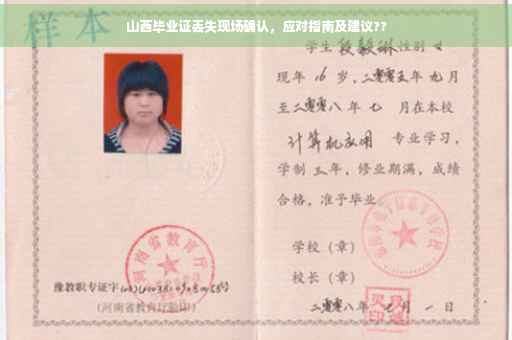 山西毕业证丢失现场确认，应对指南及建议??
样本
学生段毅琳性别女
现年16岁，二零零五年九月
至二零零八年七月在本校
计算机应用专业学习，
学制三年，修业期满，成绩
合格，准予毕业
学校（章）
校长（章）
二零零八年 月一日
河南省教育厅
豫教职专证字
（河南省教育厅验印）